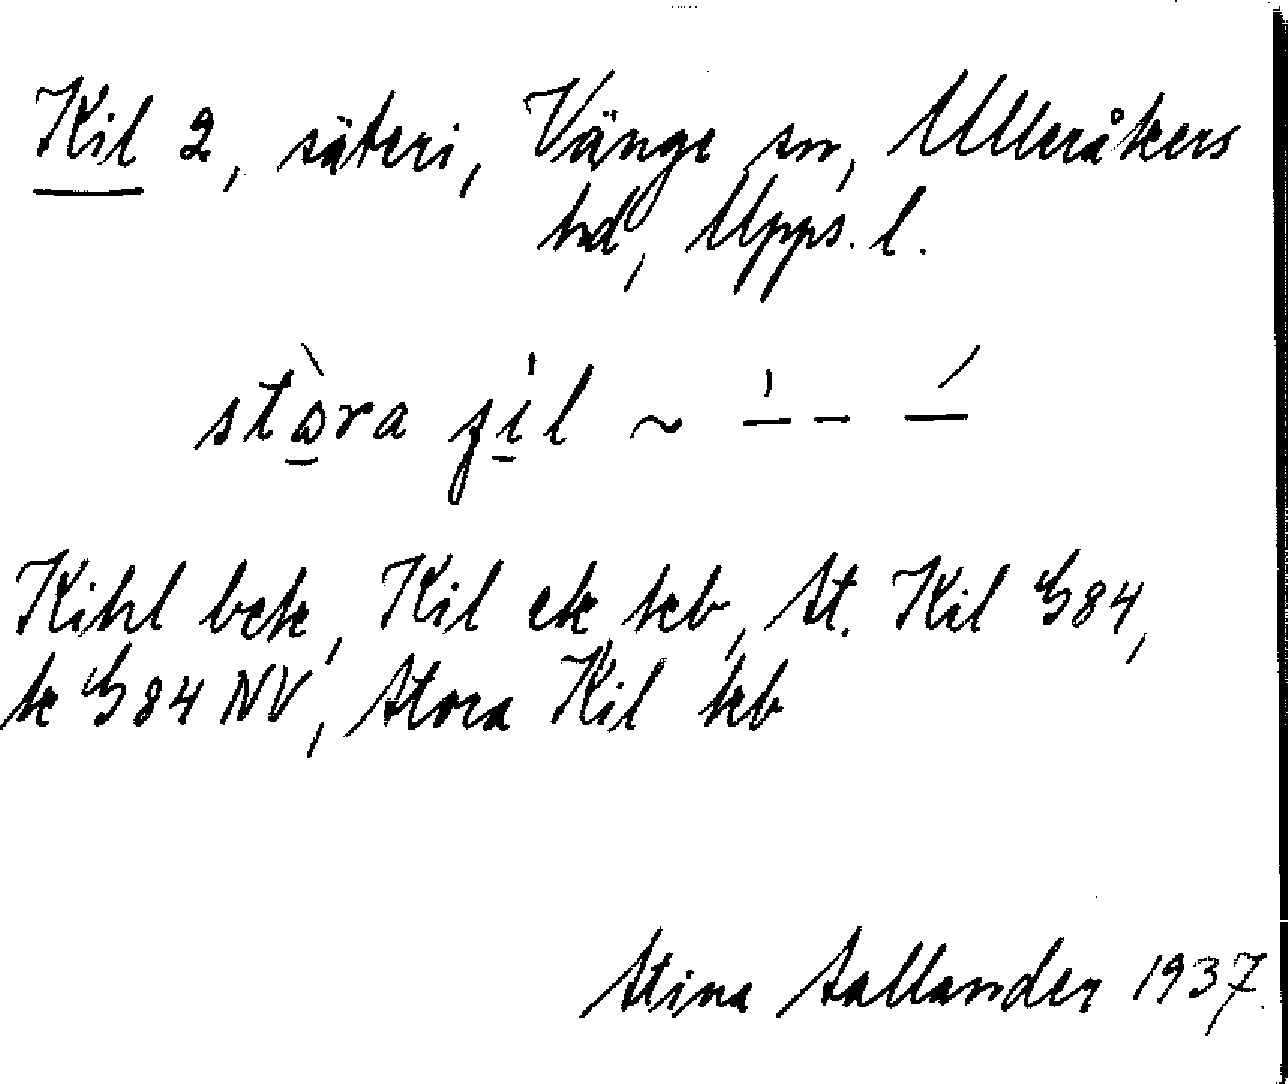 Kil 2, säteri, Vänge sn, Ulleråkers
hd, Upps. l.
stora
Kihl bek, Kil ek, kb, St. Kil G84,
k G84 NV, Stora Kil kb
Stina Sallander 1937